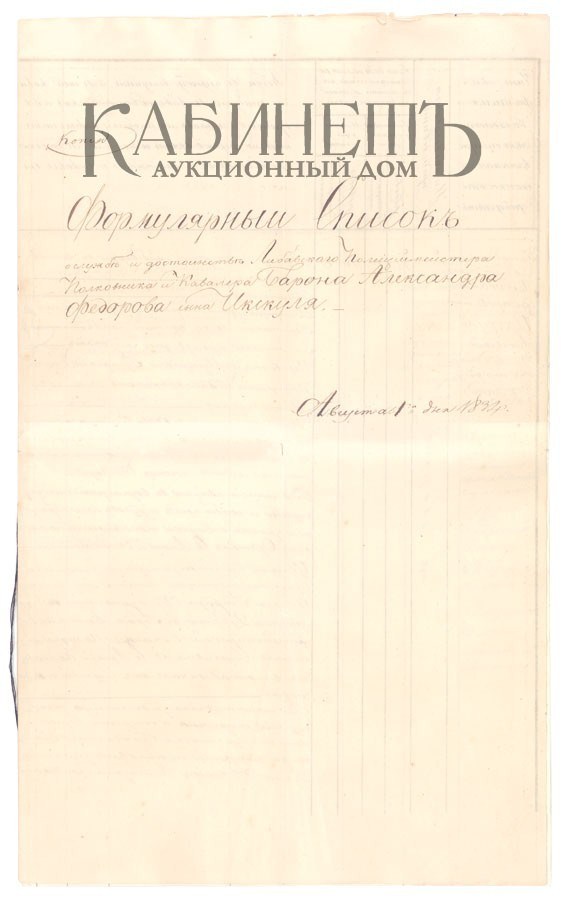 КАБИНЕТЪ
АУКЦИОННЫЙ ДОМ
Копія
Формулярный Списокъ
о службѣ и достоинствѣ Либавского Полицiймейстера
Полковника и Кавалера Барона Александра
Федорова сына Икскуля. —
Августа 1го дня 1834.